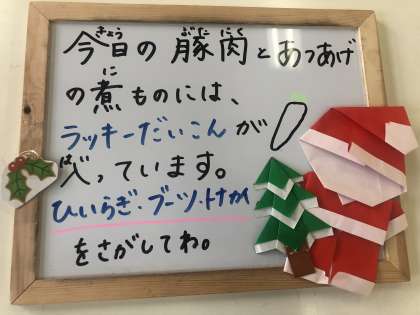 今日の豚肉とあつあげ
の煮ものには、
ラッキーだいこんが
入っています。
ひいらぎ・ブーツ・トナカイ
をさがしてね。